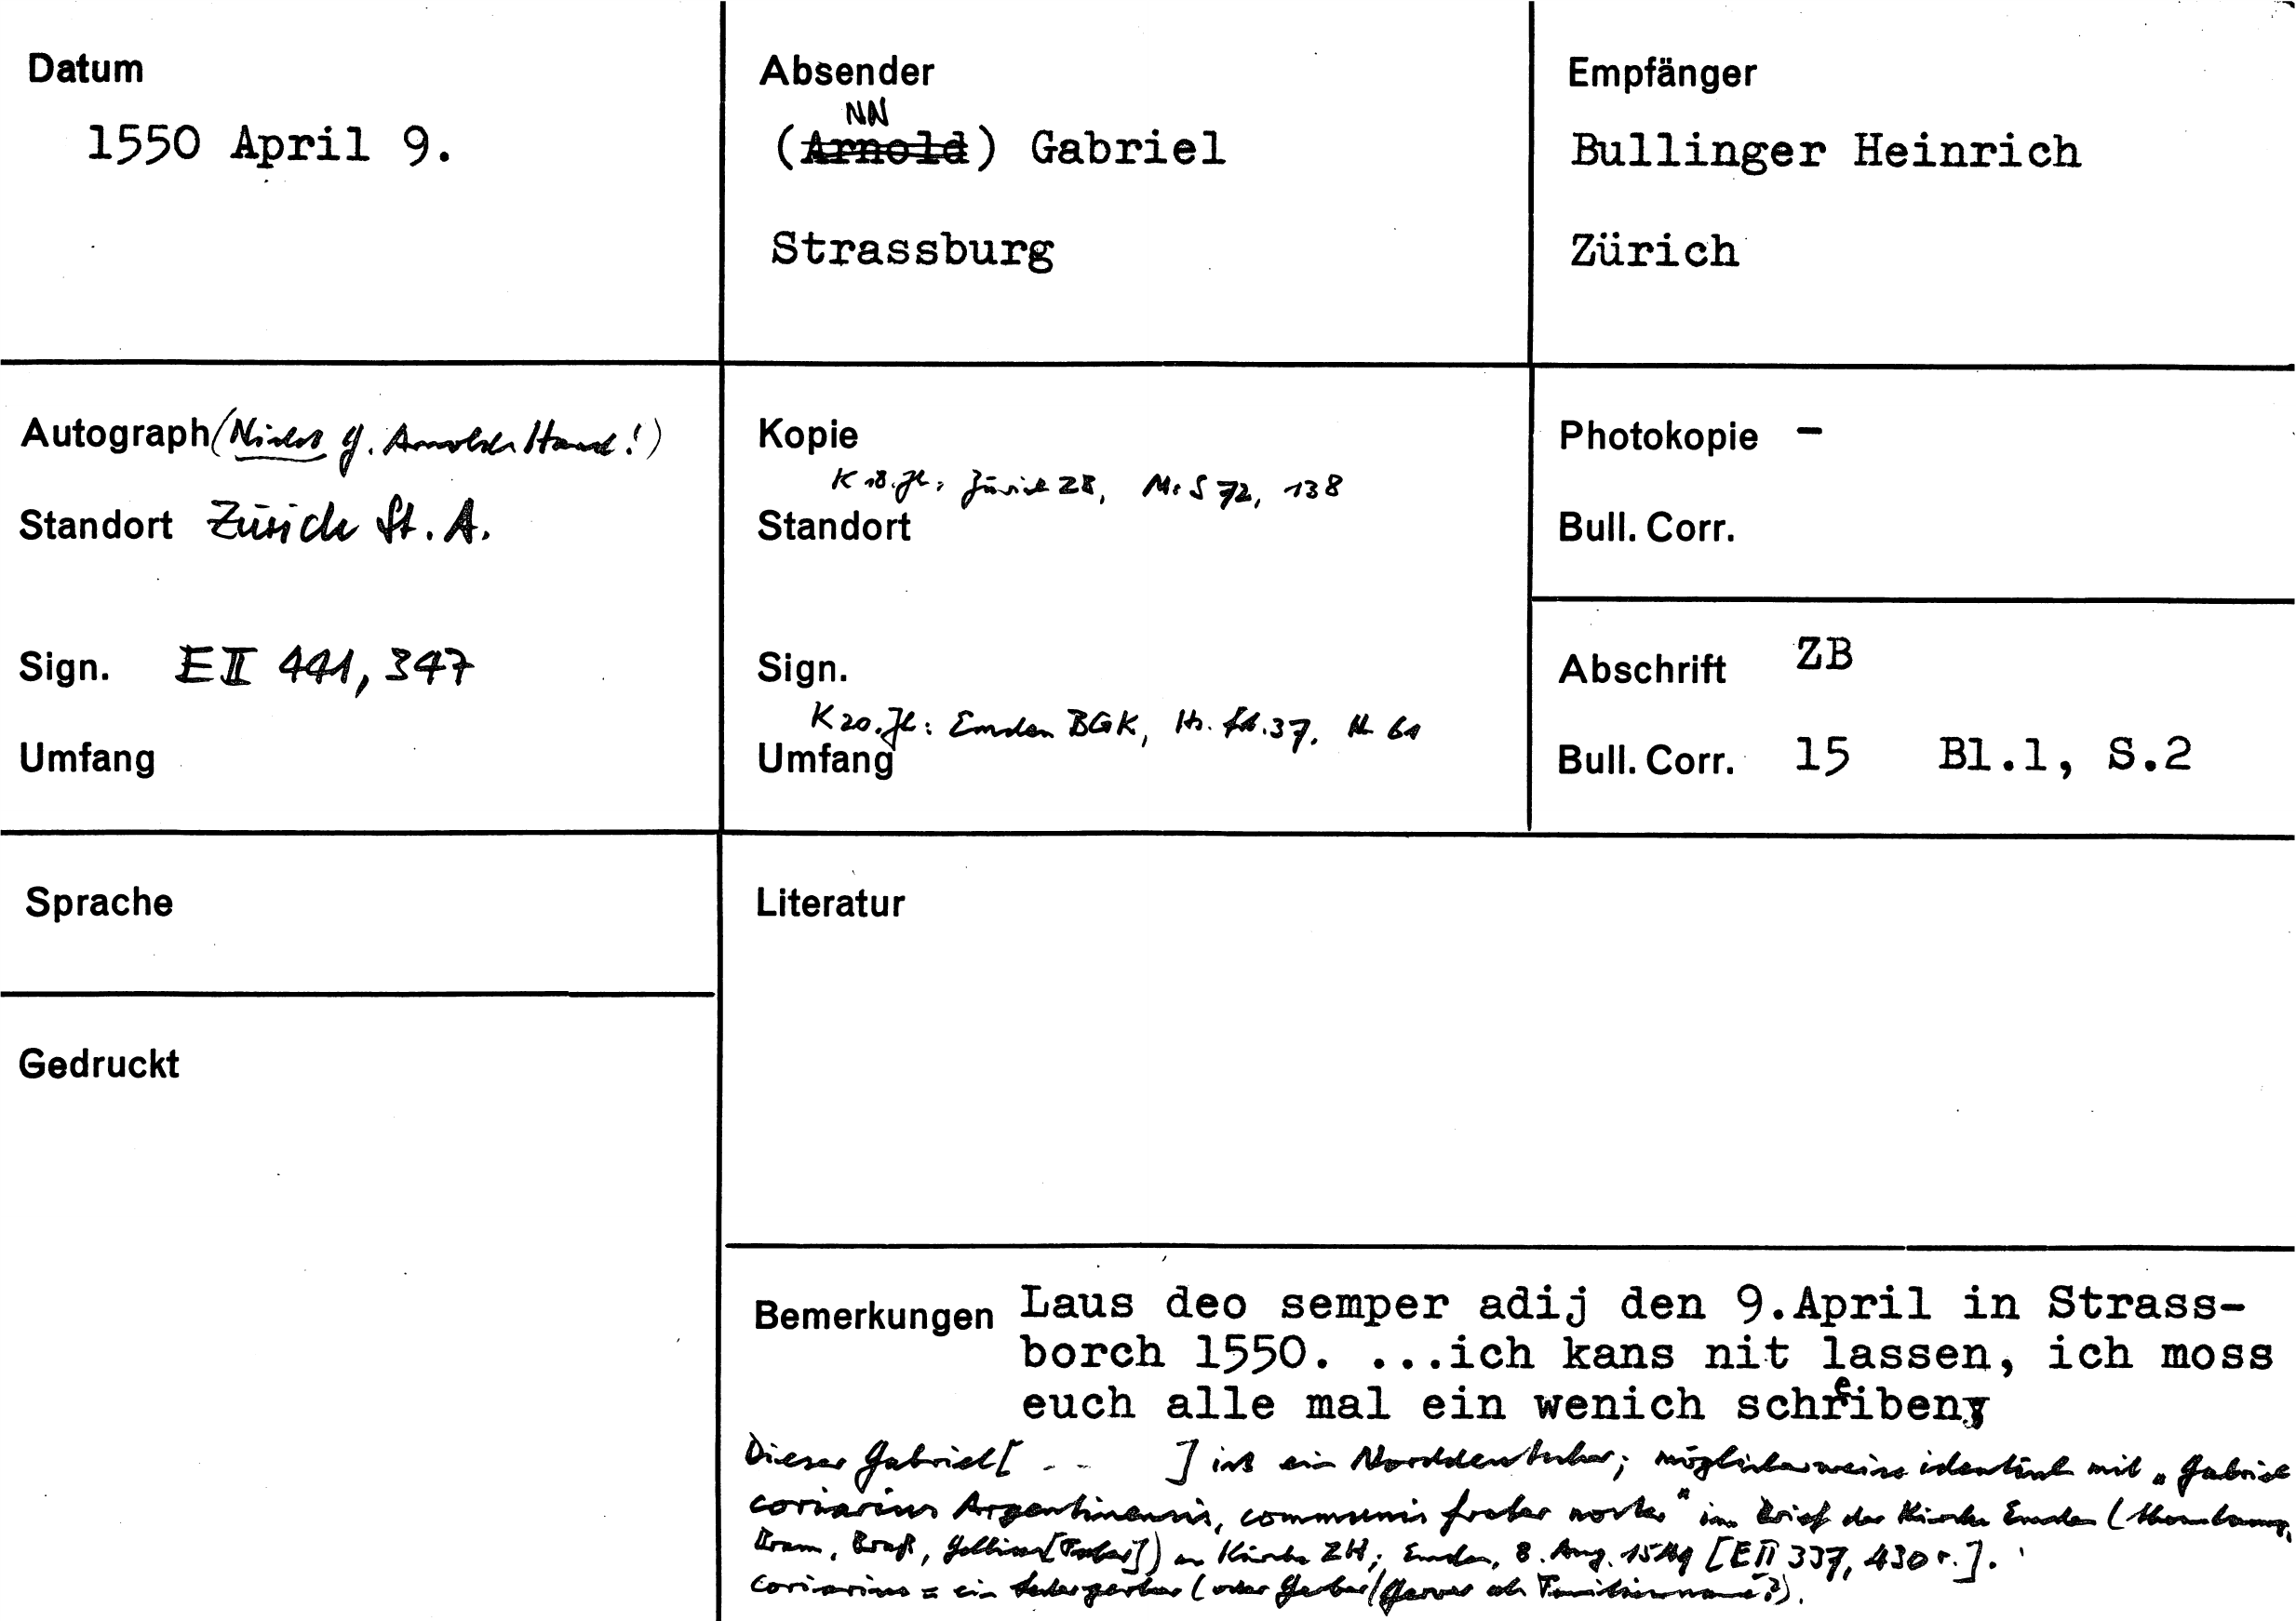 Datum
1550 April 9.
Absender
NN
(Arnold) Gabriel
Strassburg
Empfänger
Bullinger Heinrich
Zürich
Autograph (Nicht G. Arnolds Hand!)
Standort Zürich St. A.
Sign. E II 441, 347
Umfang
Kopie
K 18. Jh.: Zürich ZB, Ms S 72, 138
Standort
Sign.
K 20. Jh.: Emden BGK, Hs. fol. 37, Nr. 61
Umfang
Photokopie -
Bull. Corr.
Abschrift ZB
Bull. Corr. 15 Bl.1, S.2
Sprache
Gedruckt
Literatur
Bemerkungen Laus deo semper adij den 9.April in Strass-
borch 1550. ...ich kans nit lassen, ich moss
euch alle mal ein wenich schreiben
Dieser Gabriel [ - - ] ist ein Norddeutscher; möglicherweise identisch mit "Gabriel
coriarius Argentinensis, communis frater noster" im Brief der Kirche Emden (
Bram, Braß, Gellius [Faber]) an Kirche ZH; Emden, 8. Aug. 1549 [E II 337, 430 r.].
coriarius = ein Ledergerber (oder Gerber/Gerwer als Familienname?).